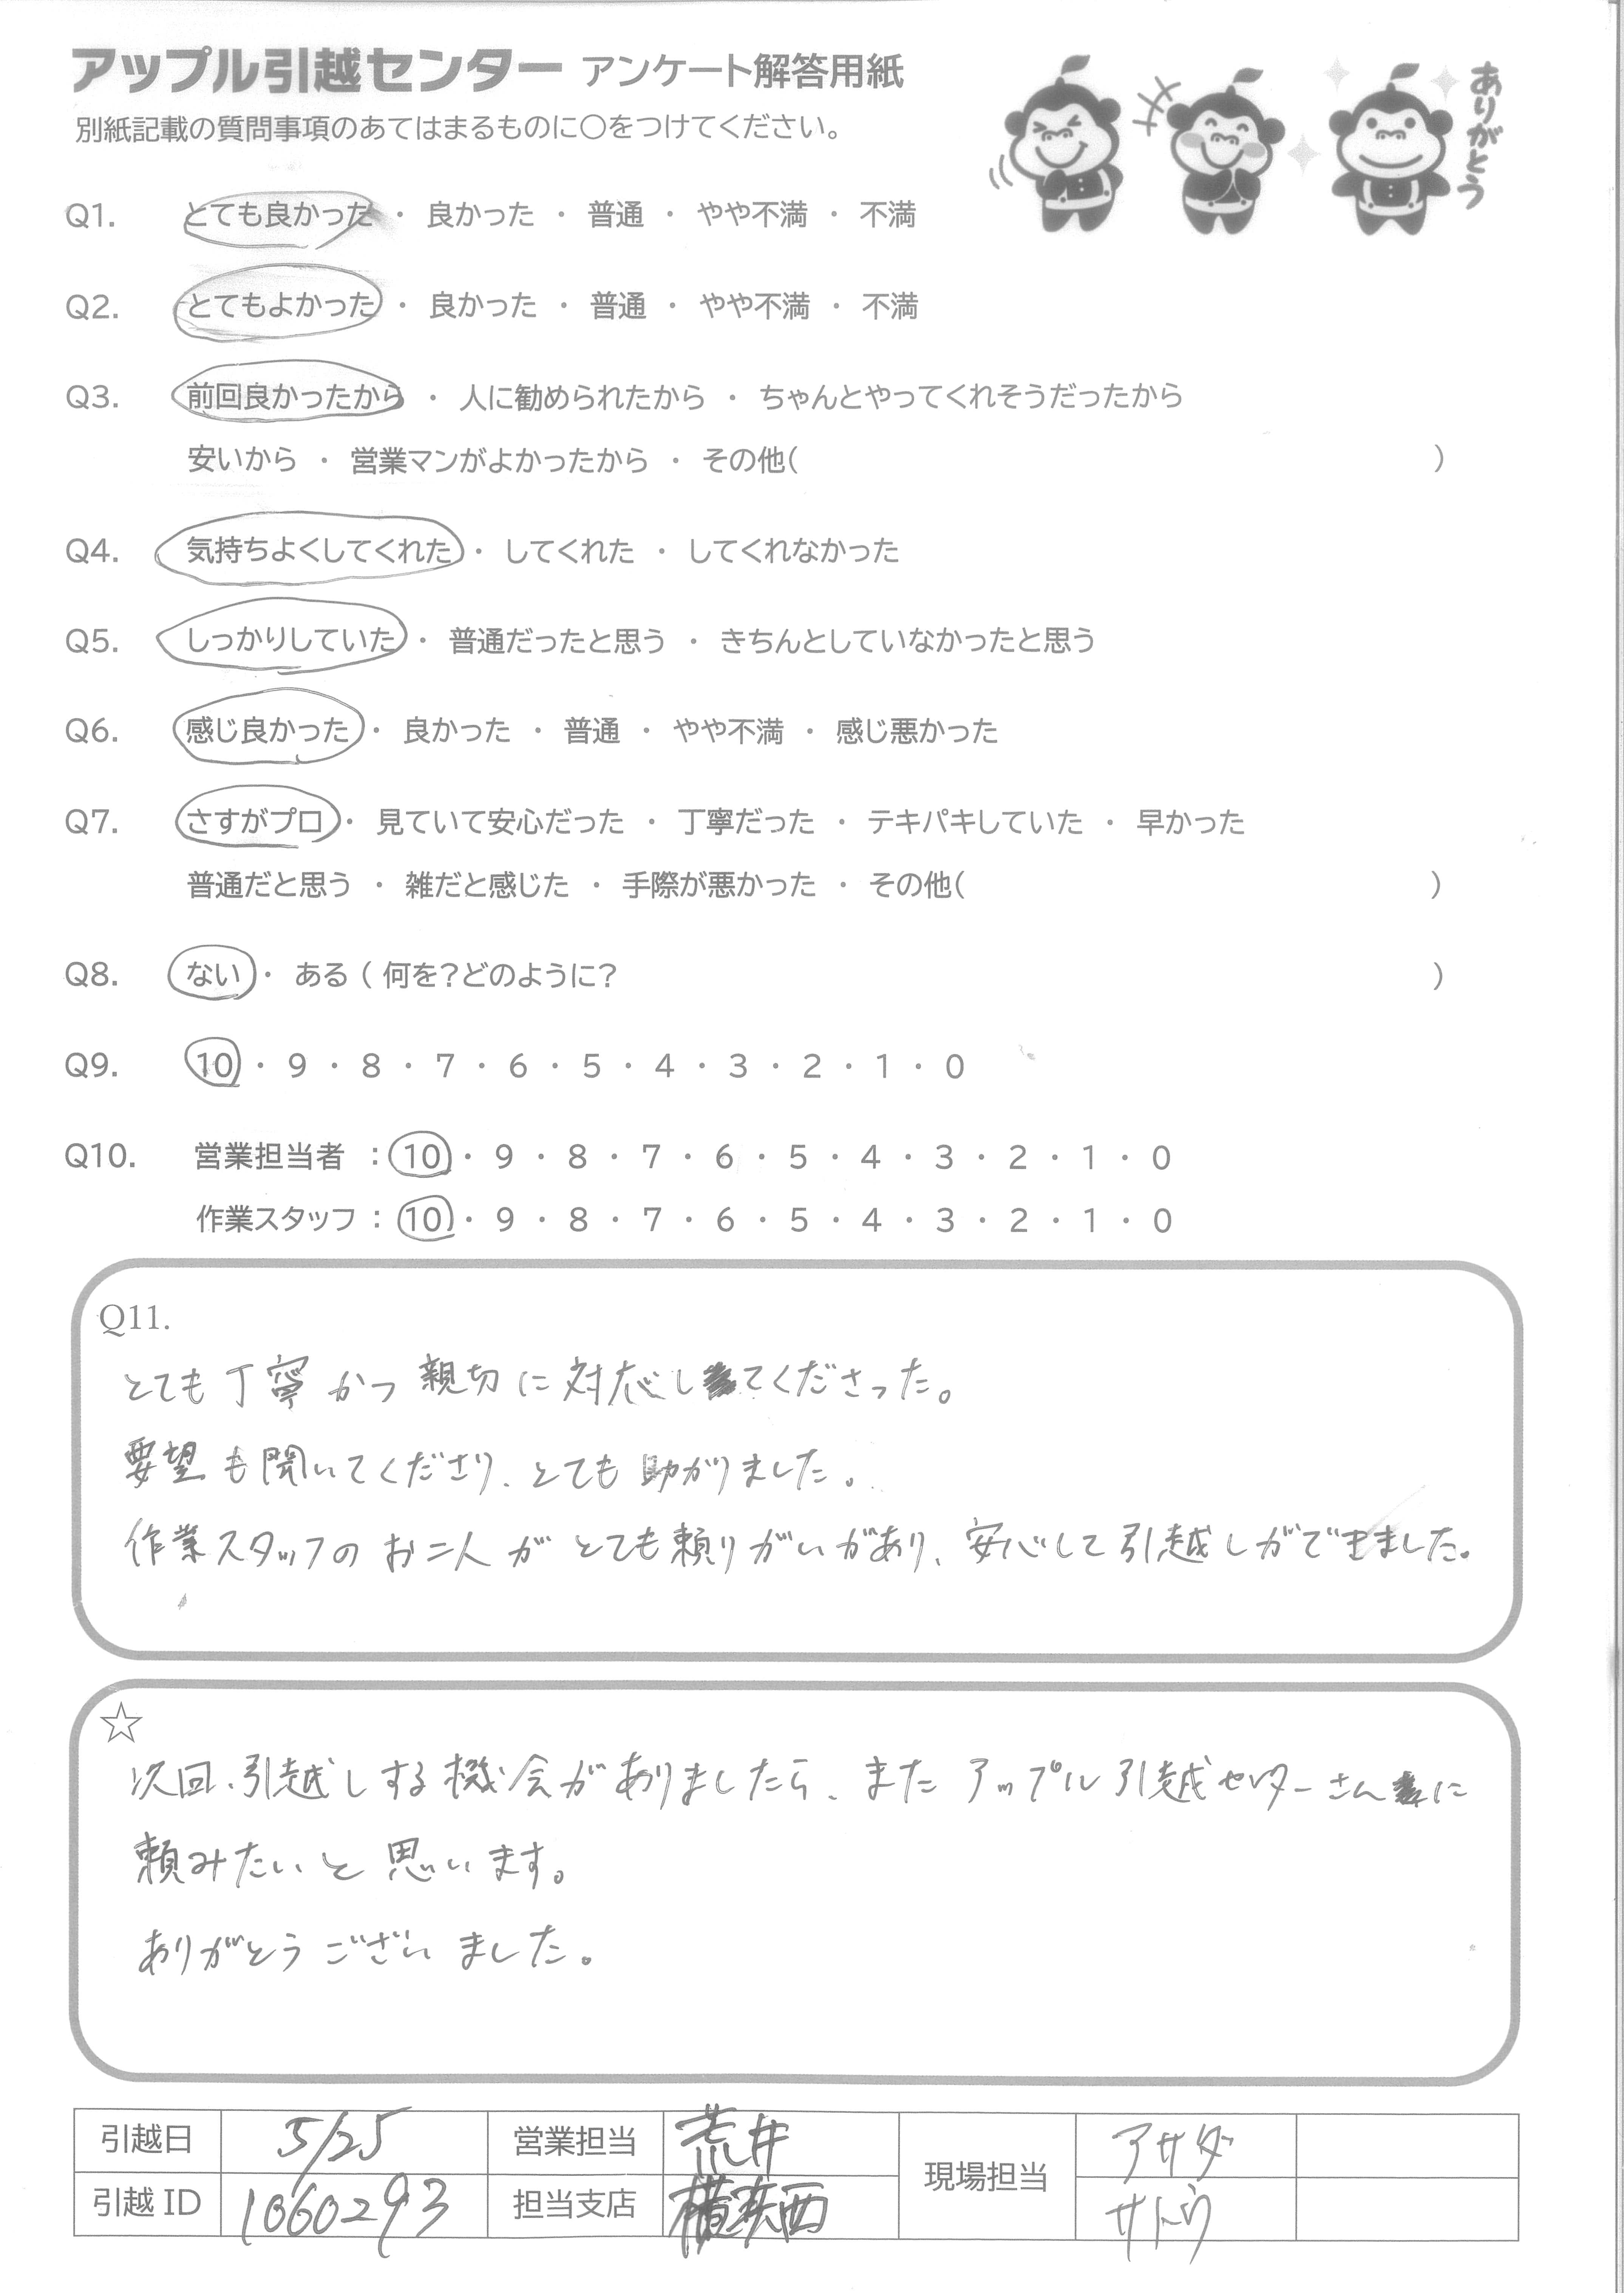 アップル引越センター アンケート解答用紙
別紙記載の質問事項のあてはまるものに〇をつけてください。
ありがとう
Q1. とても良かった ・ 良かった ・ 普通 ・ やや不満 ・ 不満
Q2. とてもよかった ・ 良かった ・ 普通 ・ やや不満 ・ 不満
Q3. 前回良かったから ・ 人に勧められたから ・ ちゃんとやってくれそうだったから
安いから ・ 営業マンがよかったから ・ その他( )
Q4. 気持ちよくしてくれた ・ してくれた ・ してくれなかった
Q5. しっかりしていた ・ 普通だったと思う ・ きちんとしていなかったと思う
Q6. 感じ良かった ・ 良かった ・ 普通 ・ やや不満 ・ 感じ悪かった
Q7. さすがプロ ・ 見ていて安心だった ・ 丁寧だった ・ テキパキしていた ・ 早かった
普通だと思う ・ 雑だと感じた ・ 手際が悪かった ・ その他( )
Q8. ない ・ ある ( 何を?どのように? )
Q9. 10 ・ 9 ・ 8 ・ 7 ・ 6 ・ 5 ・ 4 ・ 3 ・ 2 ・ 1 ・ 0
Q10. 営業担当者 : 10 ・ 9 ・ 8 ・ 7 ・ 6 ・ 5 ・ 4 ・ 3 ・ 2 ・ 1 ・ 0
作業スタッフ : 10 ・ 9 ・ 8 ・ 7 ・ 6 ・ 5 ・ 4 ・ 3 ・ 2 ・ 1 ・ 0
Q11.
とても丁寧かつ親切に対応してくださった。
要望も聞いてくださり、とても助かりました。
作業スタッフのお二人がとても頼りがいがあり、安心して引越しができました。
☆
次回、引越しする機会がありましたら、またアップル引越センターさんに
頼みたいと思います。
ありがとうございました。
引越日 5/25 営業担当 荒井 現場担当 アサダ
引越ID 1060293 担当支店 横浜西 サトウ